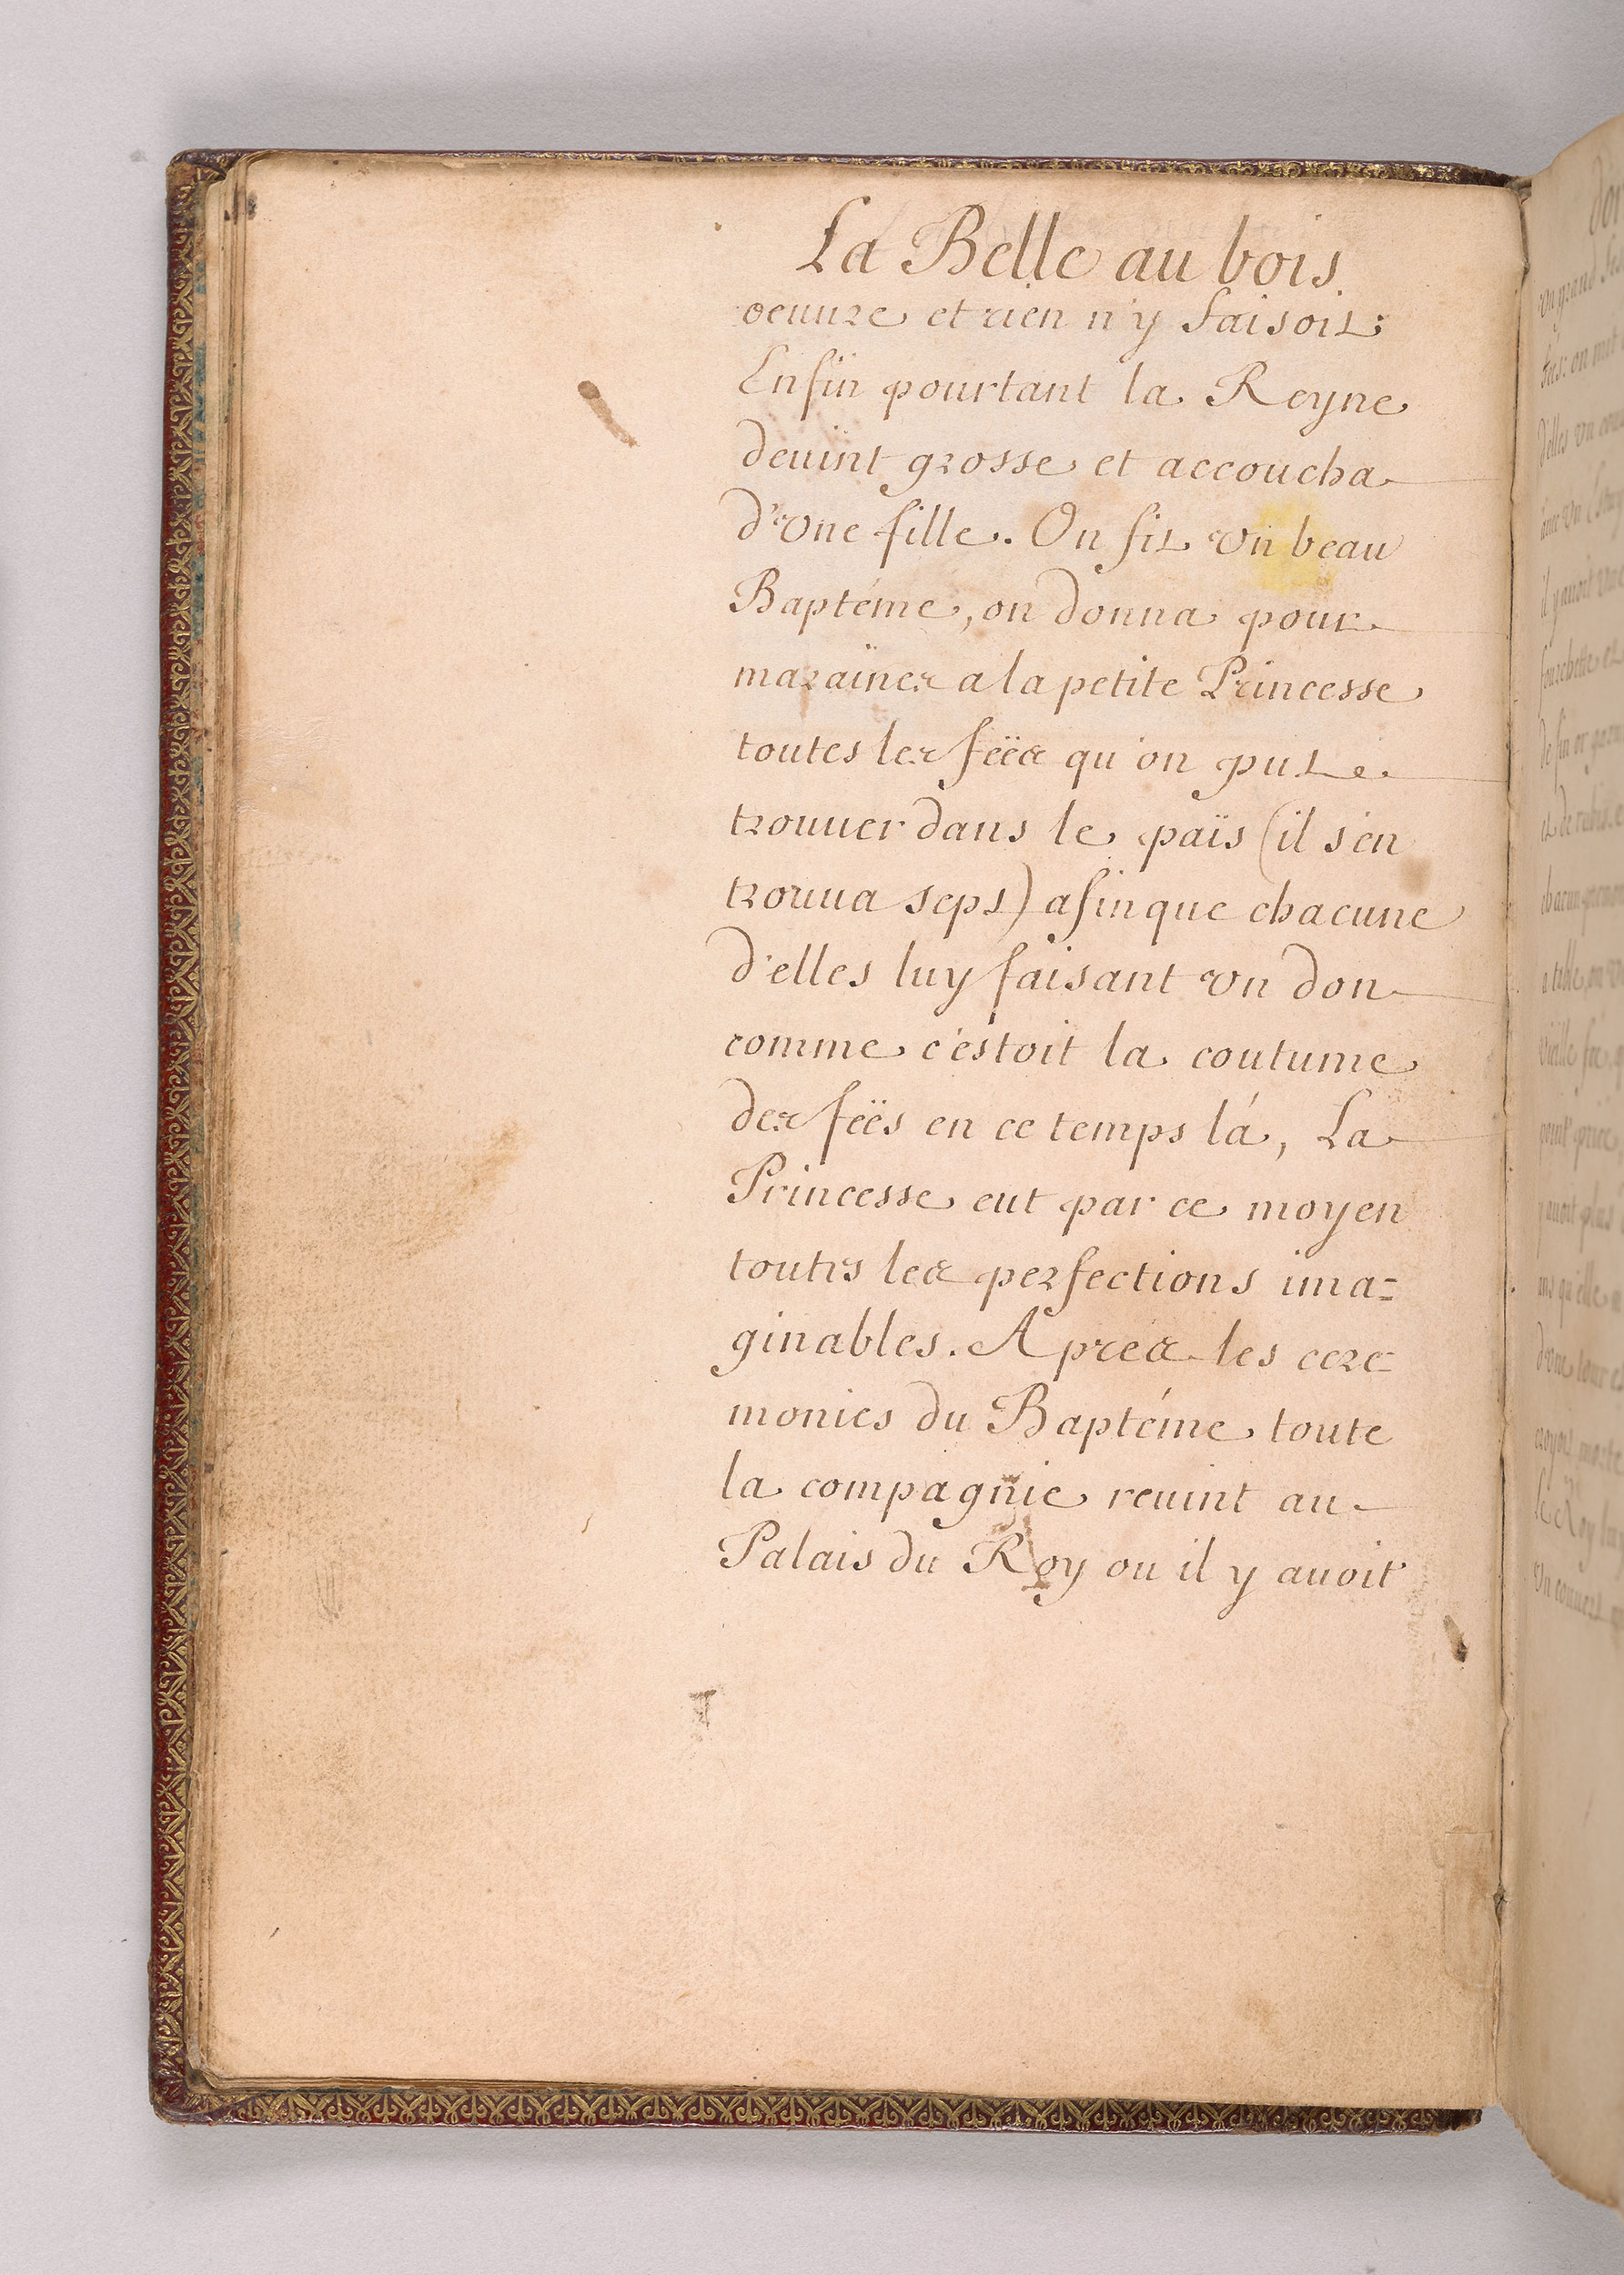 La Belle au bois
oeuure et rien n'y faisoit;
Enfin pourtant la Reyne
deuint grosse et accoucha
d'vne fille. On fit vn beau
Baptéme, on donna pour
maraines a la petite Princesse
toutes les feës qu'on put
trouuer dans le païs (il s'en
trouua sept) afin que chacune
d'elles luy faisant vn don
comme c'estoit la coutume
des feës en ce temps lá, La
Princesse eut par ce moyen
toutes les perfections ima=
ginables. Aprés les cere=
monies du Baptéme toute
la compagnie reuint au
Palais du Roy ou il y auoit